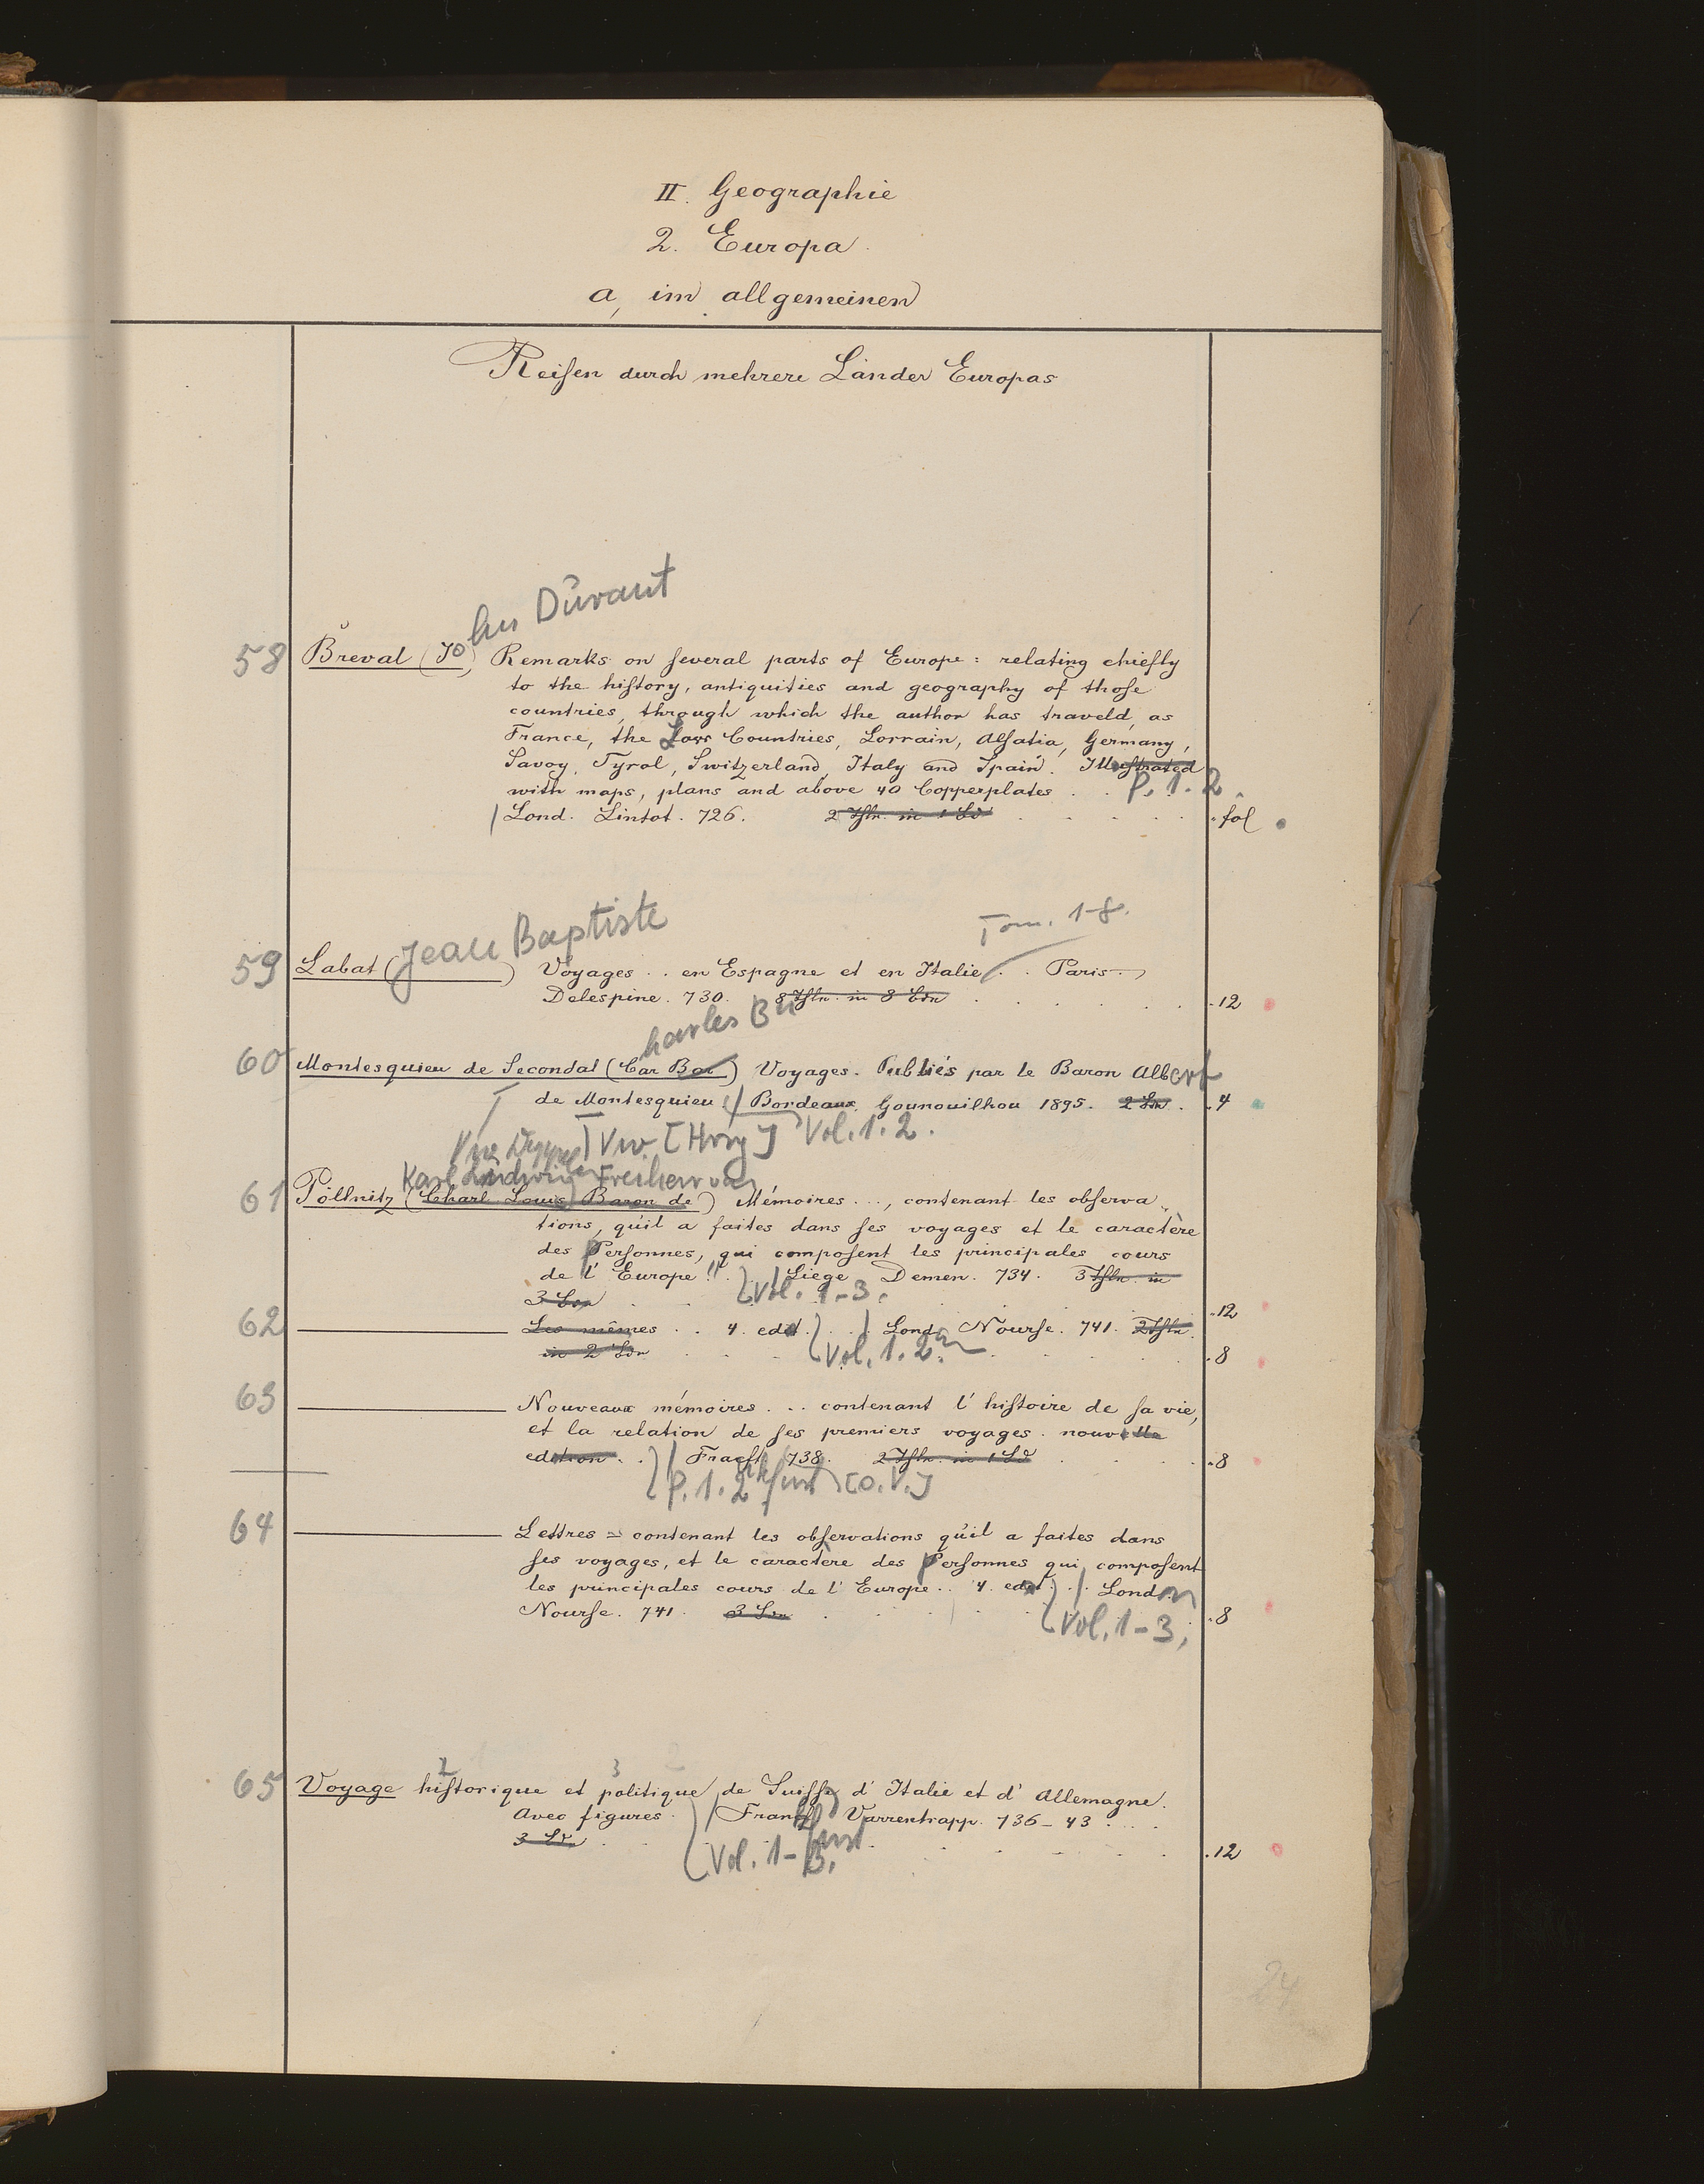 II. Geographie
2. Europa.
a, im allgemeinen
Reisen durch mehrere Länder Europas
hn Durant
58 Breval (Jo), Remarks on several parts of Europe: relating chiefly
to the history, antiquities and geography of those
countries, through which the author has traveld, as
France, the Low Countries, Lorrain, Alsatia, Germany,
Savoy, Tyrol, Switzerland, Italy and Spain. Illustrated
with maps, plans and above 40 Copperplates . . P. 1. 2.
Lond. Lintot. 726. 2 Thle. in 1 Bd . fol
Jean Baptiste Tom. 1-8.
59 Labat ( ) Voyages . . en Espagne et en Italie . . Paris
Delespine. 730. 8 Thle. in 8 Bdn . 12
harles
60 Montesquieu de Secondat (Car Bar) Voyages. Publiés par le Baron Albert
de Montesquieu. Bordeaux, Gounouilhou 1895. 2 Bde . 4
Vol. 1. 2.
Karl Ludwig Freiherr von
61 Pöllnitz (Charl. Louis Baron de) Mémoires . . , contenant les observa
tions, qu'il a faites dans ses voyages et le caractère
des Personnes, qui composent les principales cours
de l'Europe. Liege Demen. 734. 3 Thle. in
3 Bdn Vol. 1-3. . 12
62 Les mêmes . . 4. edit. . . Lond. Nourse. 741. 2 Thle.
in 2 Bdn Vol. 1. 2. . 8
63 Nouveaux mémoires . . . contenant l'histoire de sa vie,
et la relation de ses premiers voyages. nouvelle
edition . . Fracft 738. 2 Thle. in 1 Bd . 8
P. 1. 2 furt [O. V.]
64 Lettres = contenant les observations qu'il a faites dans
ses voyages, et le caractère des Personnes qui composent
les principales cours de l'Europe . . 4. edit. . . London
Nourse. 741. 3 Bde . 8
Vol. 1-3.
2 3
65 Voyage historique et politique de Suisse, d'Italie et d'Allemagne.
Avec figures. Frankf Varrentrapp. 736-43 . . .
3 Bde furt . 12
Vol. 1-3.
24